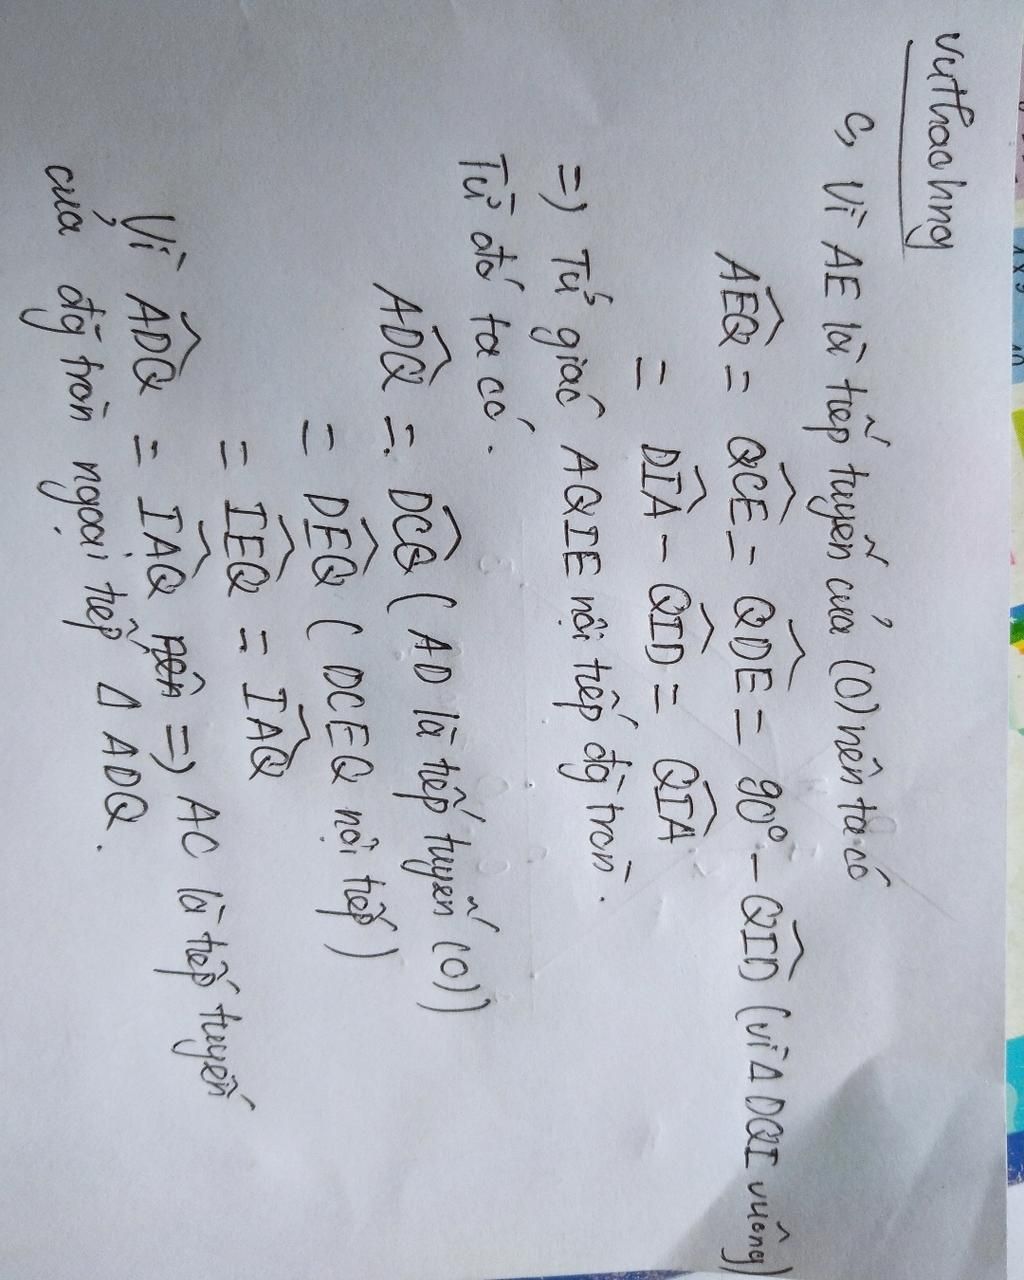 vuthaohng
c, Vì AE là tiếp tuyến của (O) nên ta có
AEQ = QCE = QDE = 90° - QID (vì Δ DQI vuông)
= DIA - QID = QIA
=) Tứ giác AQIE nội tiếp đg tròn.
Từ đó ta có.
ADQ = DCQ (AD là tiếp tuyến (O))
= DEQ (DCEQ nội tiếp)
= IEQ = IAQ
Vì ADQ = IAQ nên =) AC là tiếp tuyến
của đg tròn ngoại tiếp Δ ADQ.